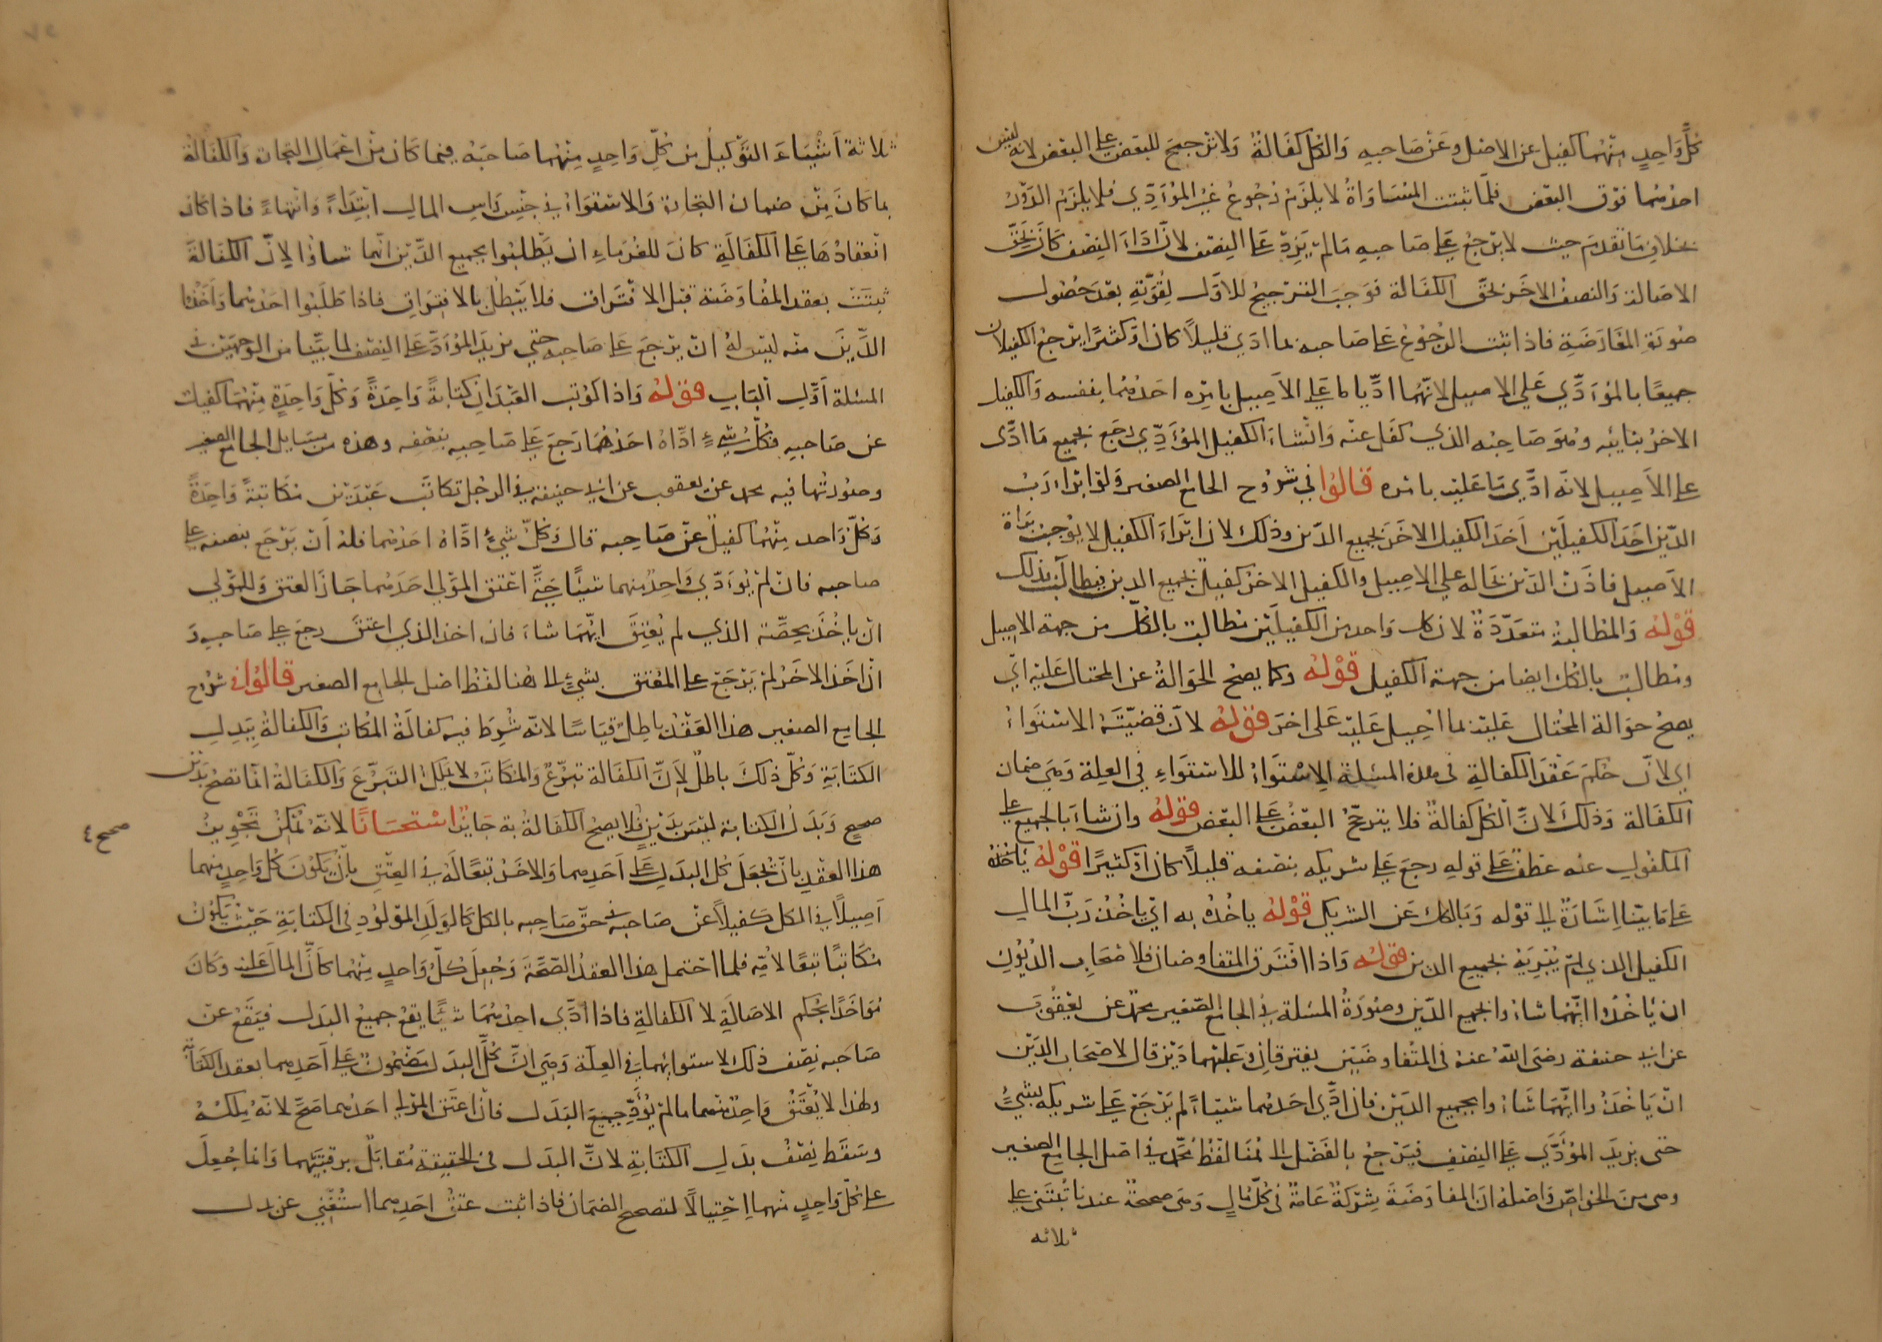 كل واحد منهما كفيل عن الاصل وعن صاحبه والكل كفالة ولا ترجيح للبعض على البعض لانه ليس
احدهما فوق البعض فلما ثبتت المساواة لا يلزم رجوع غير المؤدي فلا يلزم الدور
بخلاف ما تقدم حيث لا يرجع على صاحبه ما لم يزد على النصف لان اداء النصف كان بحق
الاصالة والنصف الاخر بحق الكفالة فوجب الترجيح للاول لقوته بعد حصول
صورة المعارضة فاذا ثبت الرجوع على صاحبه بما ادي قليلا كان او كثيرا يرجع الكفيلان
جميعا بالمؤدي على الاصيل لانهما اديا ما على الاصيل بامره احدهما بنفسه والكفيل
الاخر بنايبه وهو صاحبه الذي كفل عنه وان شاء الكفيل المؤدي رجع بجميع ما ادى
على الاصيل لانه ادي ما عليه بامره قالوا في شروح الجامع الصغير ولو ابراء رب
الدين احد الكفيلين اخذ الكفيل الاخر بجميع الدين وذلك لان ابراء الكفيل لا يوجب براة
الاصيل فاذن الدين بحاله على الاصيل والكفيل الاخر كفيل بجميع الدين فيطالب بذلك
قوله والمطالبة متعددة لان كل واحد من الكفيلين مطالب بالكل من جهة الاصيل
ومطالب بالكل ايضا من جهة الكفيل قوله وكما يصح الحوالة عن المحتال عليه اي
يصح حوالة المحتال عليه بما احيل عليه على اخر قوله لان قضيته الاستواء
اي لان حكم عقد الكفالة في هذه المسئلة الاستواء للاستواء في العلة وهي ضمان
الكفالة وذلك لان الكل كفالة فلا يترجح البعض على البعض قوله وان شاء بالجميع على
المكفول عنه عطف على قوله رجع على شريكه بنصفه قليلا كان او كثيرا قوله ياخذه
على ما بينا اشارة الى قوله وبالكل عن الشريك قوله ياخذه به اي ياخذ رب المال
الكفيل الذي لم يبريه بجميع الدين قوله واذا افترق المتفاوضان فلاصحاب الديون
ان ياخذوا ايهما شاؤا بجميع الدين وصورة المسئلة في الجامع الصغير محمد عن يعقوب
عن ابي حنيفة رضى الله عنه فى المتفاوضين يفترقان وعليهما دين قال لاصحاب الدين
ان ياخذوا ايهما شاؤا بجميع الدين فان ادى احدهما شيئا لم يرجع على شريكه بشيء
حتى يزيد المؤدي على النصف فيرجع بالفضل الى هنا لفظ محمد في اصل الجامع الصغير
وهي من الخواص واصله ان المفاوضة شركة عامة في كل مال وهي صحيحة عندنا تبتنى على
ثلاثه
ثلاثة اشياء التوكيل من كل واحد منهما صاحبه فيما كان من اعمال التجارة والكفالة
بما كان من ضمان التجارة والاستواء في جنس راس المال ابتداء وانتهاء فاذا كان
انعقادها على الكفالة كان للغرماء ان يطلبوا بجميع الدين ايهما شاؤا لان الكفالة
ثبتت بعقد المفاوضة قبل الافتراق فلا يبطل بالافتراق فاذا طلبوا احدهما واخذوا
الدين منه ليس له ان يرجع على صاحبه حتي يزيد المؤدى على النصف لما بينا من الوجهين في
المسئلة اول الباب قوله واذا كوتب العبدان كتابة واحدة وكل واحدة منهما كفيل
عن صاحبه فكل شيء اداه احدهما رجع على صاحبه بنصفه وهذه من مسايل الجامع الصغير
وصورتها فيه محمد عن يعقوب عن ابي حنيفة في الرجل تكاتب عبدين مكاتبة واحدة
وكل واحد منهما كفيل عن صاحبه قال وكل شيء اداه احدهما فله ان يرجع بنصفه على
صاحبه فان لم يؤدي واحد منهما شيئا حتى اعتق المولي احدهما جاز العتق وللمولي
ان ياخذ بحصة الذي لم يعتق ايهما شاء فان اخذ الذي اعتق رجع على صاحبه و
ان اخذ الاخر لم يرجع على المعتق بشيء الى هنا لفظ اصل الجامع الصغير قالوا في شروح
الجامع الصغير هذا العقد باطل قياسا لانه شرط فيه كفالة المكاتب والكفالة ببدل
الكتابة وكل ذلك باطل لان الكفالة تبرع والمكاتب لا يملك التبرع والكفالة انما تصح بدين
صحيح وبدل الكتابة ليس بدين فلا يصح الكفالة به جايز استحسانا لانه يمكن تجويز
صح ع
هذا العقد بان يجعل كل البدل على احدهما والاخر تبعا له في العتق بان يكون كل واحد منهما
اصيلا في الكل كفيلا عن صاحبه في حق صاحبه بالكل كالولد المولود في الكتابة حيث يكون
مكاتبا تبعا لامه فلما احتمل هذا العقد الصحة وجعل كل واحد منهما كان المال عليه وكان
مؤاخذا بحكم الاصالة لا الكفالة فاذا ادى احدهما شيئا يقع جميع البدل فيقع عن
صاحبه نصف ذلك لاستوائهما في العلة وهي ان كل البدل مضمون على احدهما بعقد الكتابة
ولهذا لا يعتق واحد منهما ما لم يؤد جميع البدل فان اعتق المولى احدهما صح لانه ملكه
وسقط نصف بدل الكتابة لان البدل في الحقيقة مقابل برقبتيهما وانما جعل
على كل واحد منهما احتيالا لتصحيح الضمان فاذا ثبت عتق احدهما استغني عن بدل